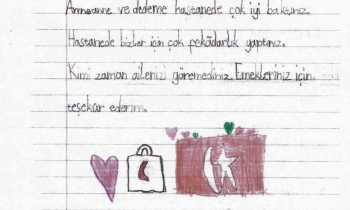 Anneanne ve dedeme hastanede çok iyi baktınız.
Hastanede bizler için çok fekâdarlık yaptınız.
Kimi zaman ailenizi göremediniz. Emekleriniz için
teşekür ederim.